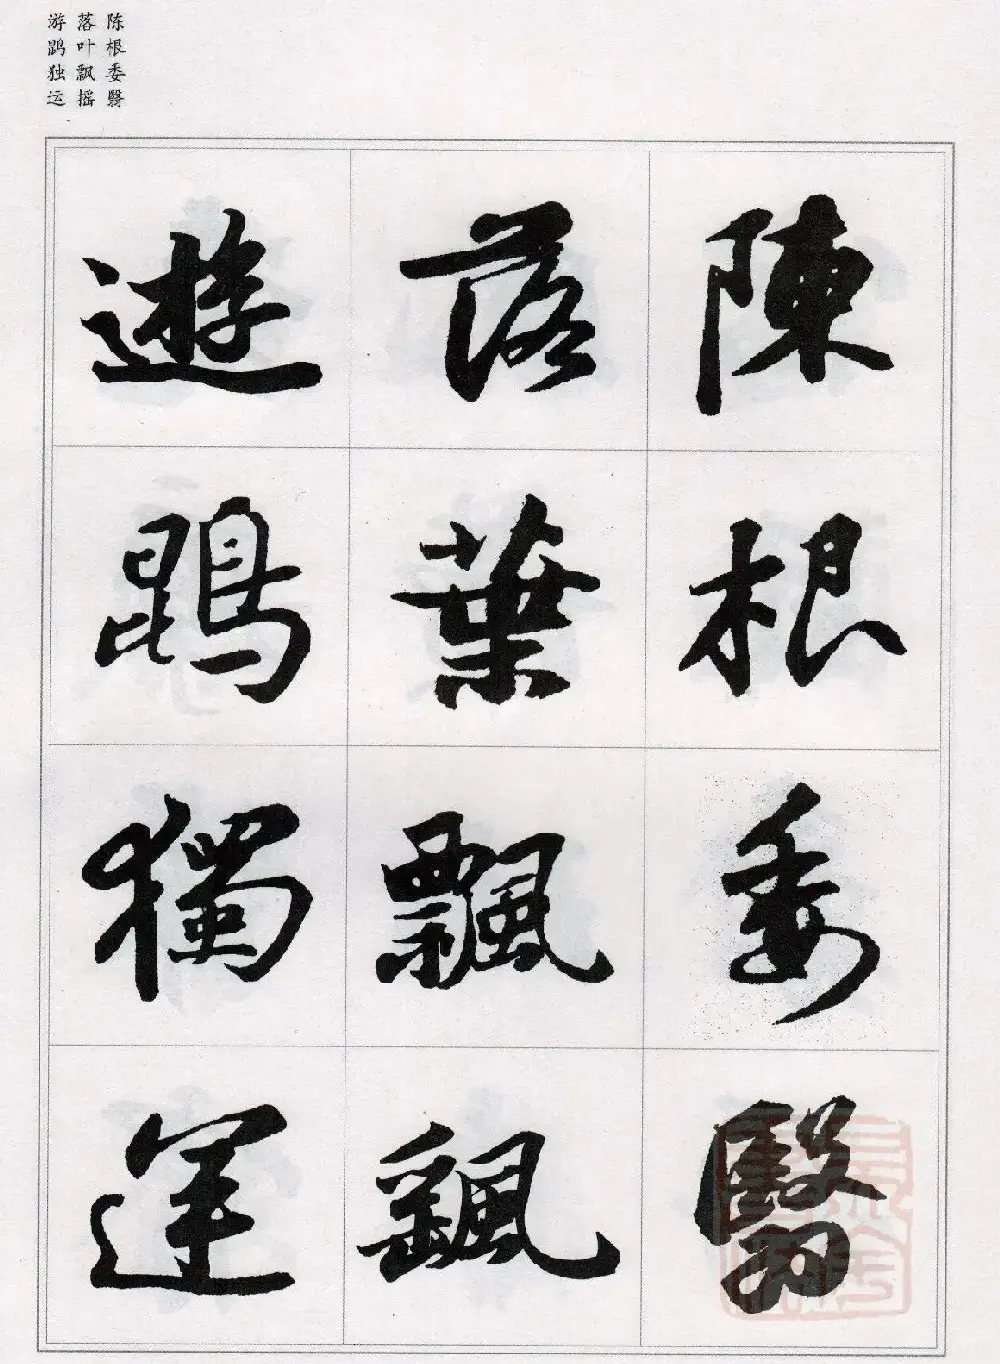 陈根委翳
落叶飘摇
游鹍独运
陳根委翳
落葉飄颻
遊鵾獨運